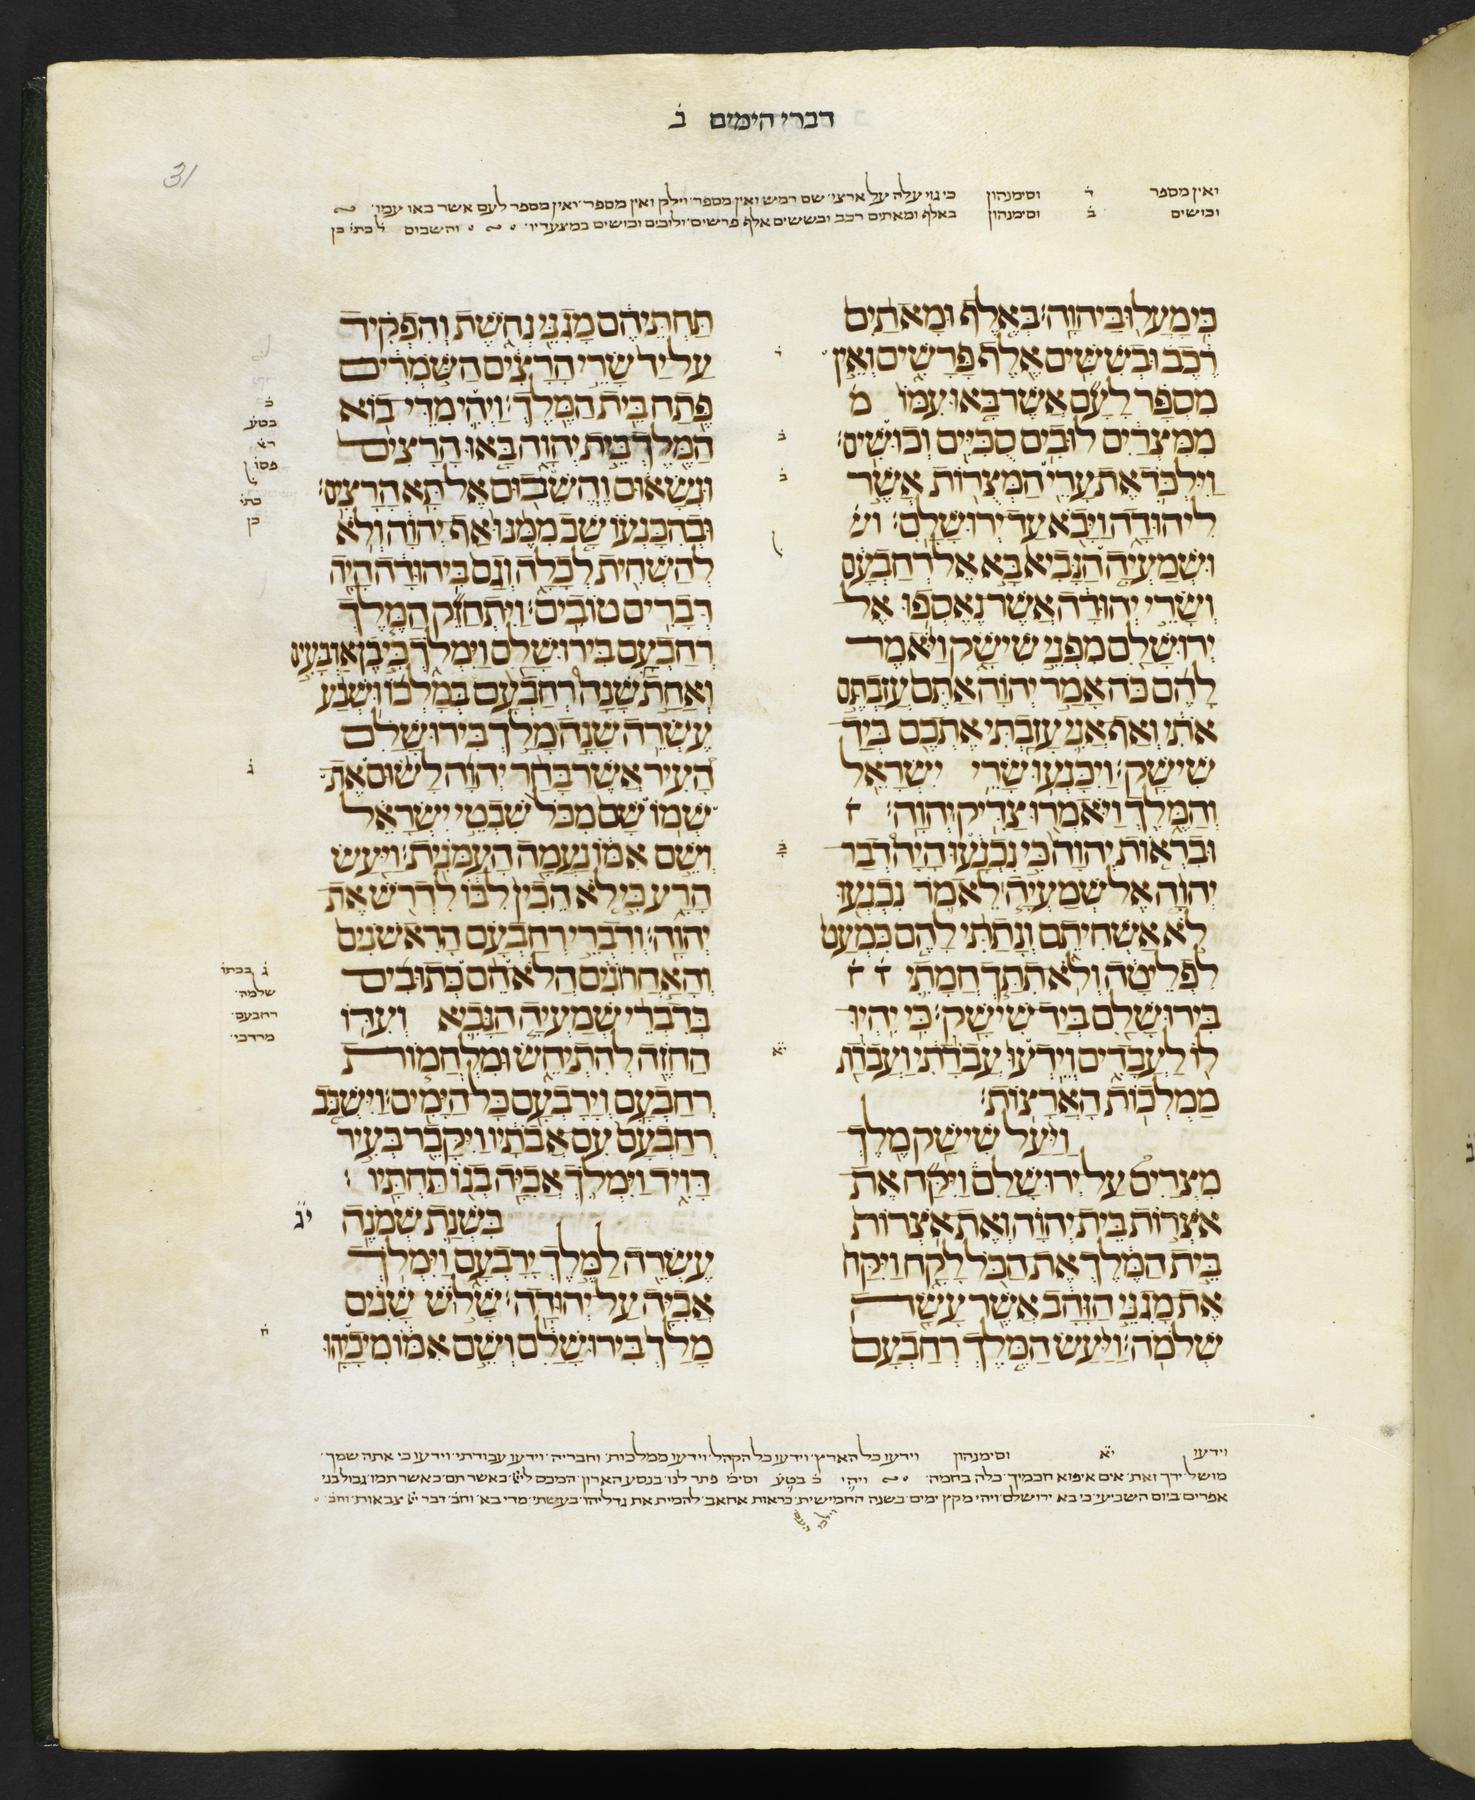 דברי הימים ב
31
ואין מספר ד וסימנהון כי גוי עלה על ארצי שם רמש ואין מספר וילק ואין מספר ואין מספר לעם אשר באו עמו
וכושים ב וסימנהון באלף ומאתים רכב ובששים אלף פרשים ולובים וכושים במצעדיו והשבום ל כתי כן
כִּי מָעֲלוּ בַּיהוָה׃ בְּאֶלֶף וּמָאתַיִם
רֶכֶב וּבְשִׁשִּׁים אֶלֶף פָּרָשִׁים וְאֵין
מִסְפָּר לָעָם אֲשֶׁר בָּאוּ עִמּוֹ מ
מִמִּצְרַיִם לוּבִים סֻכִּיִּים וְכוּשִׁים׃
וַיִּלְכֹּד אֶת עָרֵי הַמְּצֻרוֹת אֲשֶׁר
לִיהוּדָה וַיָּבֹא עַד יְרוּשָׁלִָם׃ וש
וּשְׁמַעְיָה הַנָּבִיא בָּא אֶל רְחַבְעָם
וְשָׂרֵי יְהוּדָה אֲשֶׁר נֶאֶסְפוּ אֶל
יְרוּשָׁלִַם מִפְּנֵי שִׁישָׁק וַיֹּאמֶר
לָהֶם כֹּה אָמַר יְהוָה אַתֶּם עֲזַבְתֶּם
אֹתִי וְאַף אֲנִי עָזַבְתִּי אֶתְכֶם בְּיַד
שִׁישָׁק׃ וַיִּכָּנְעוּ שָׂרֵי יִשְׂרָאֵל
וְהַמֶּלֶךְ וַיֹּאמְרוּ צַדִּיק יְהוָה׃
וּבִרְאוֹת יְהוָה כִּי נִכְנָעוּ הָיָה דְבַר
יְהוָה אֶל שְׁמַעְיָה לֵאמֹר נִכְנְעוּ
לֹא אַשְׁחִיתֵם וְנָתַתִּי לָהֶם כִּמְעַט
לִפְלֵיטָה וְלֹא תִתַּךְ חֲמָתִי
בִּירוּשָׁלִַם בְּיַד שִׁישָׁק׃ כִּי יִהְיוּ
לוֹ לַעֲבָדִים וְיֵדְעוּ עֲבֹדָתִי וַעֲבֹדַת
מַמְלְכוֹת הָאֲרָצוֹת׃
וַיַּעַל שִׁישַׁק מֶלֶךְ
מִצְרַיִם עַל יְרוּשָׁלִַם וַיִּקַּח אֶת
אֹצְרוֹת בֵּית יְהוָה וְאֶת אֹצְרוֹת
בֵּית הַמֶּלֶךְ אֶת הַכֹּל לָקָח וַיִּקַּח
אֶת מָגִנֵּי הַזָּהָב אֲשֶׁר עָשָׂה
שְׁלֹמֹה׃ וַיַּעַשׂ הַמֶּלֶךְ רְחַבְעָם
תַּחְתֵּיהֶם מָגִנֵּי נְחֹשֶׁת וְהִפְקִיד
עַל יַד שָׂרֵי הָרָצִים הַשֹּׁמְרִים
פֶּתַח בֵּית הַמֶּלֶךְ׃ וַיְהִי מִדֵּי בוֹא
הַמֶּלֶךְ בֵּית יְהוָה בָּאוּ הָרָצִים
וּנְשָׂאוּם וֶהֱשִׁבוּם אֶל תָּא הָרָצִים׃
וּבְהִכָּנְעוֹ שָׁב מִמֶּנּוּ אַף יְהוָה וְלֹא
לְהַשְׁחִית לְכָלָה וְגַם בִּיהוּדָה הָיָה
דְּבָרִים טוֹבִים׃ וַיִּתְחַזֵּק הַמֶּלֶךְ
רְחַבְעָם בִּירוּשָׁלִַם וַיִּמְלֹךְ כִּי בֶן אַרְבָּעִים
וְאַחַת שָׁנָה רְחַבְעָם בְּמָלְכוֹ וּשֲׁבַע
עֶשְׂרֵה שָׁנָה מָלַךְ בִּירוּשָׁלִַם
הָעִיר אֲשֶׁר בָּחַר יְהוָה לָשׂוּם אֶת
שְׁמוֹ שָׁם מִכֹּל שִׁבְטֵי יִשְׂרָאֵל
וְשֵׁם אִמּוֹ נַעֲמָה הָעַמֹּנִית׃ וַיַּעַשׂ
הָרָע כִּי לֹא הֵכִין לִבּוֹ לִדְרֹשׁ אֶת
יְהוָה׃ וְדִבְרֵי רְחַבְעָם הָרִאשֹׁנִים
וְהָאַחֲרֹנִים הֲלֹא הֵם כְּתוּבִים
בְּדִבְרֵי שְׁמַעְיָה הַנָּבִיא וְעִדּוֹ
הַחֹזֶה לְהִתְיַחֵשׂ וּמִלְחֲמוֹת
רְחַבְעָם וְיָרָבְעָם כָּל הַיָּמִים׃ וַיִּשְׁכַּב
רְחַבְעָם עִם אֲבֹתָיו וַיִּקָּבֵר בְּעִיר
דָּוִיד וַיִּמְלֹךְ אֲבִיָּה בְנוֹ תַּחְתָּיו׃
בִּשְׁנַת שְׁמֹנֶה
עֶשְׂרֵה לַמֶּלֶךְ יָרָבְעָם וַיִּמְלֹךְ
אֲבִיָּה עַל יְהוּדָה׃ שָׁלוֹשׁ שָׁנִים
מָלַךְ בִּירוּשָׁלִַם וְשֵׁם אִמּוֹ מִיכָיָהוּ
ד
ב
ב
ב
יא
ב
בטע
רא
פסו
כתי
כן
ג
ג בכתו
שלמה
רחבעם
מרדכי
יג
ח
וידעו יא וסימנהון וידעו כל הארץ וידעו כל הקהל וידעו ממלכות וחבריה וידעו עבודתי וידעו כי אתה שמך
מושל ידך זאת אים איפוא חכמיך כלה בחמה ויהי ב בטע וסימ פתר לנו בנסע הארון המכס ליי כאשר תם כאשר תמו גבול בני
אפרים ביום השביעי כי בא ירושלם ויהי מקץ ימים בשנה החמישית כראות אחאב להמית את גדליהו בעשתי מדי בא וחב דבר יי צבאות וחב